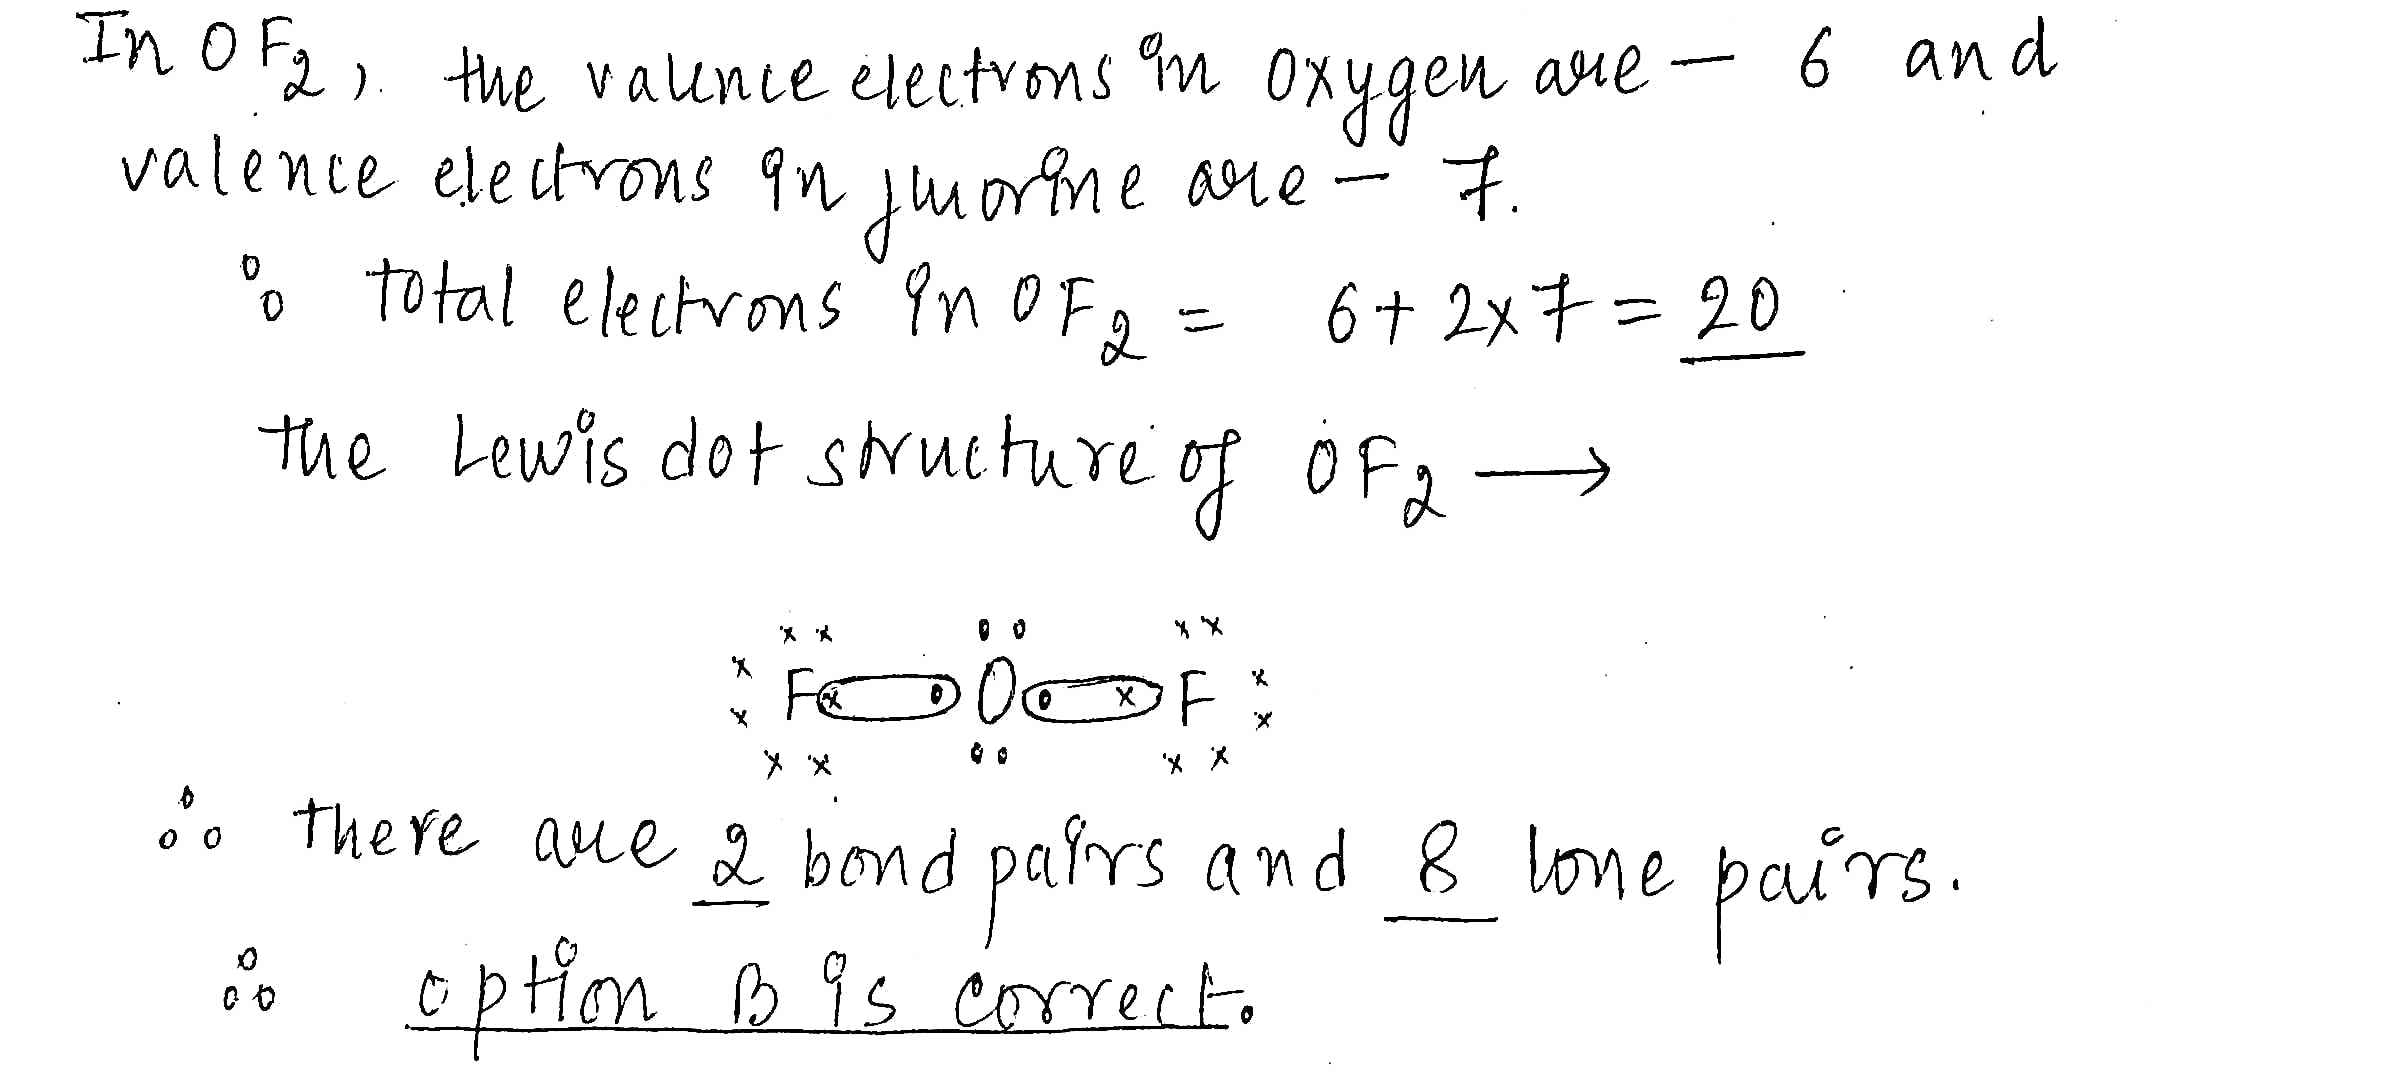 In OF₂, the valence electrons in oxygen are — 6 and
valence electrons in fluorine are — 7.
∴ total electrons in OF₂ = 6 + 2x7 = 20
the Lewis dot structure of OF₂ ⟶
x x oo x x
x F x o O o x F x
x x
x x oo x x
∴ there are 2 bond pairs and 8 lone pairs.
∴ option B is correct.